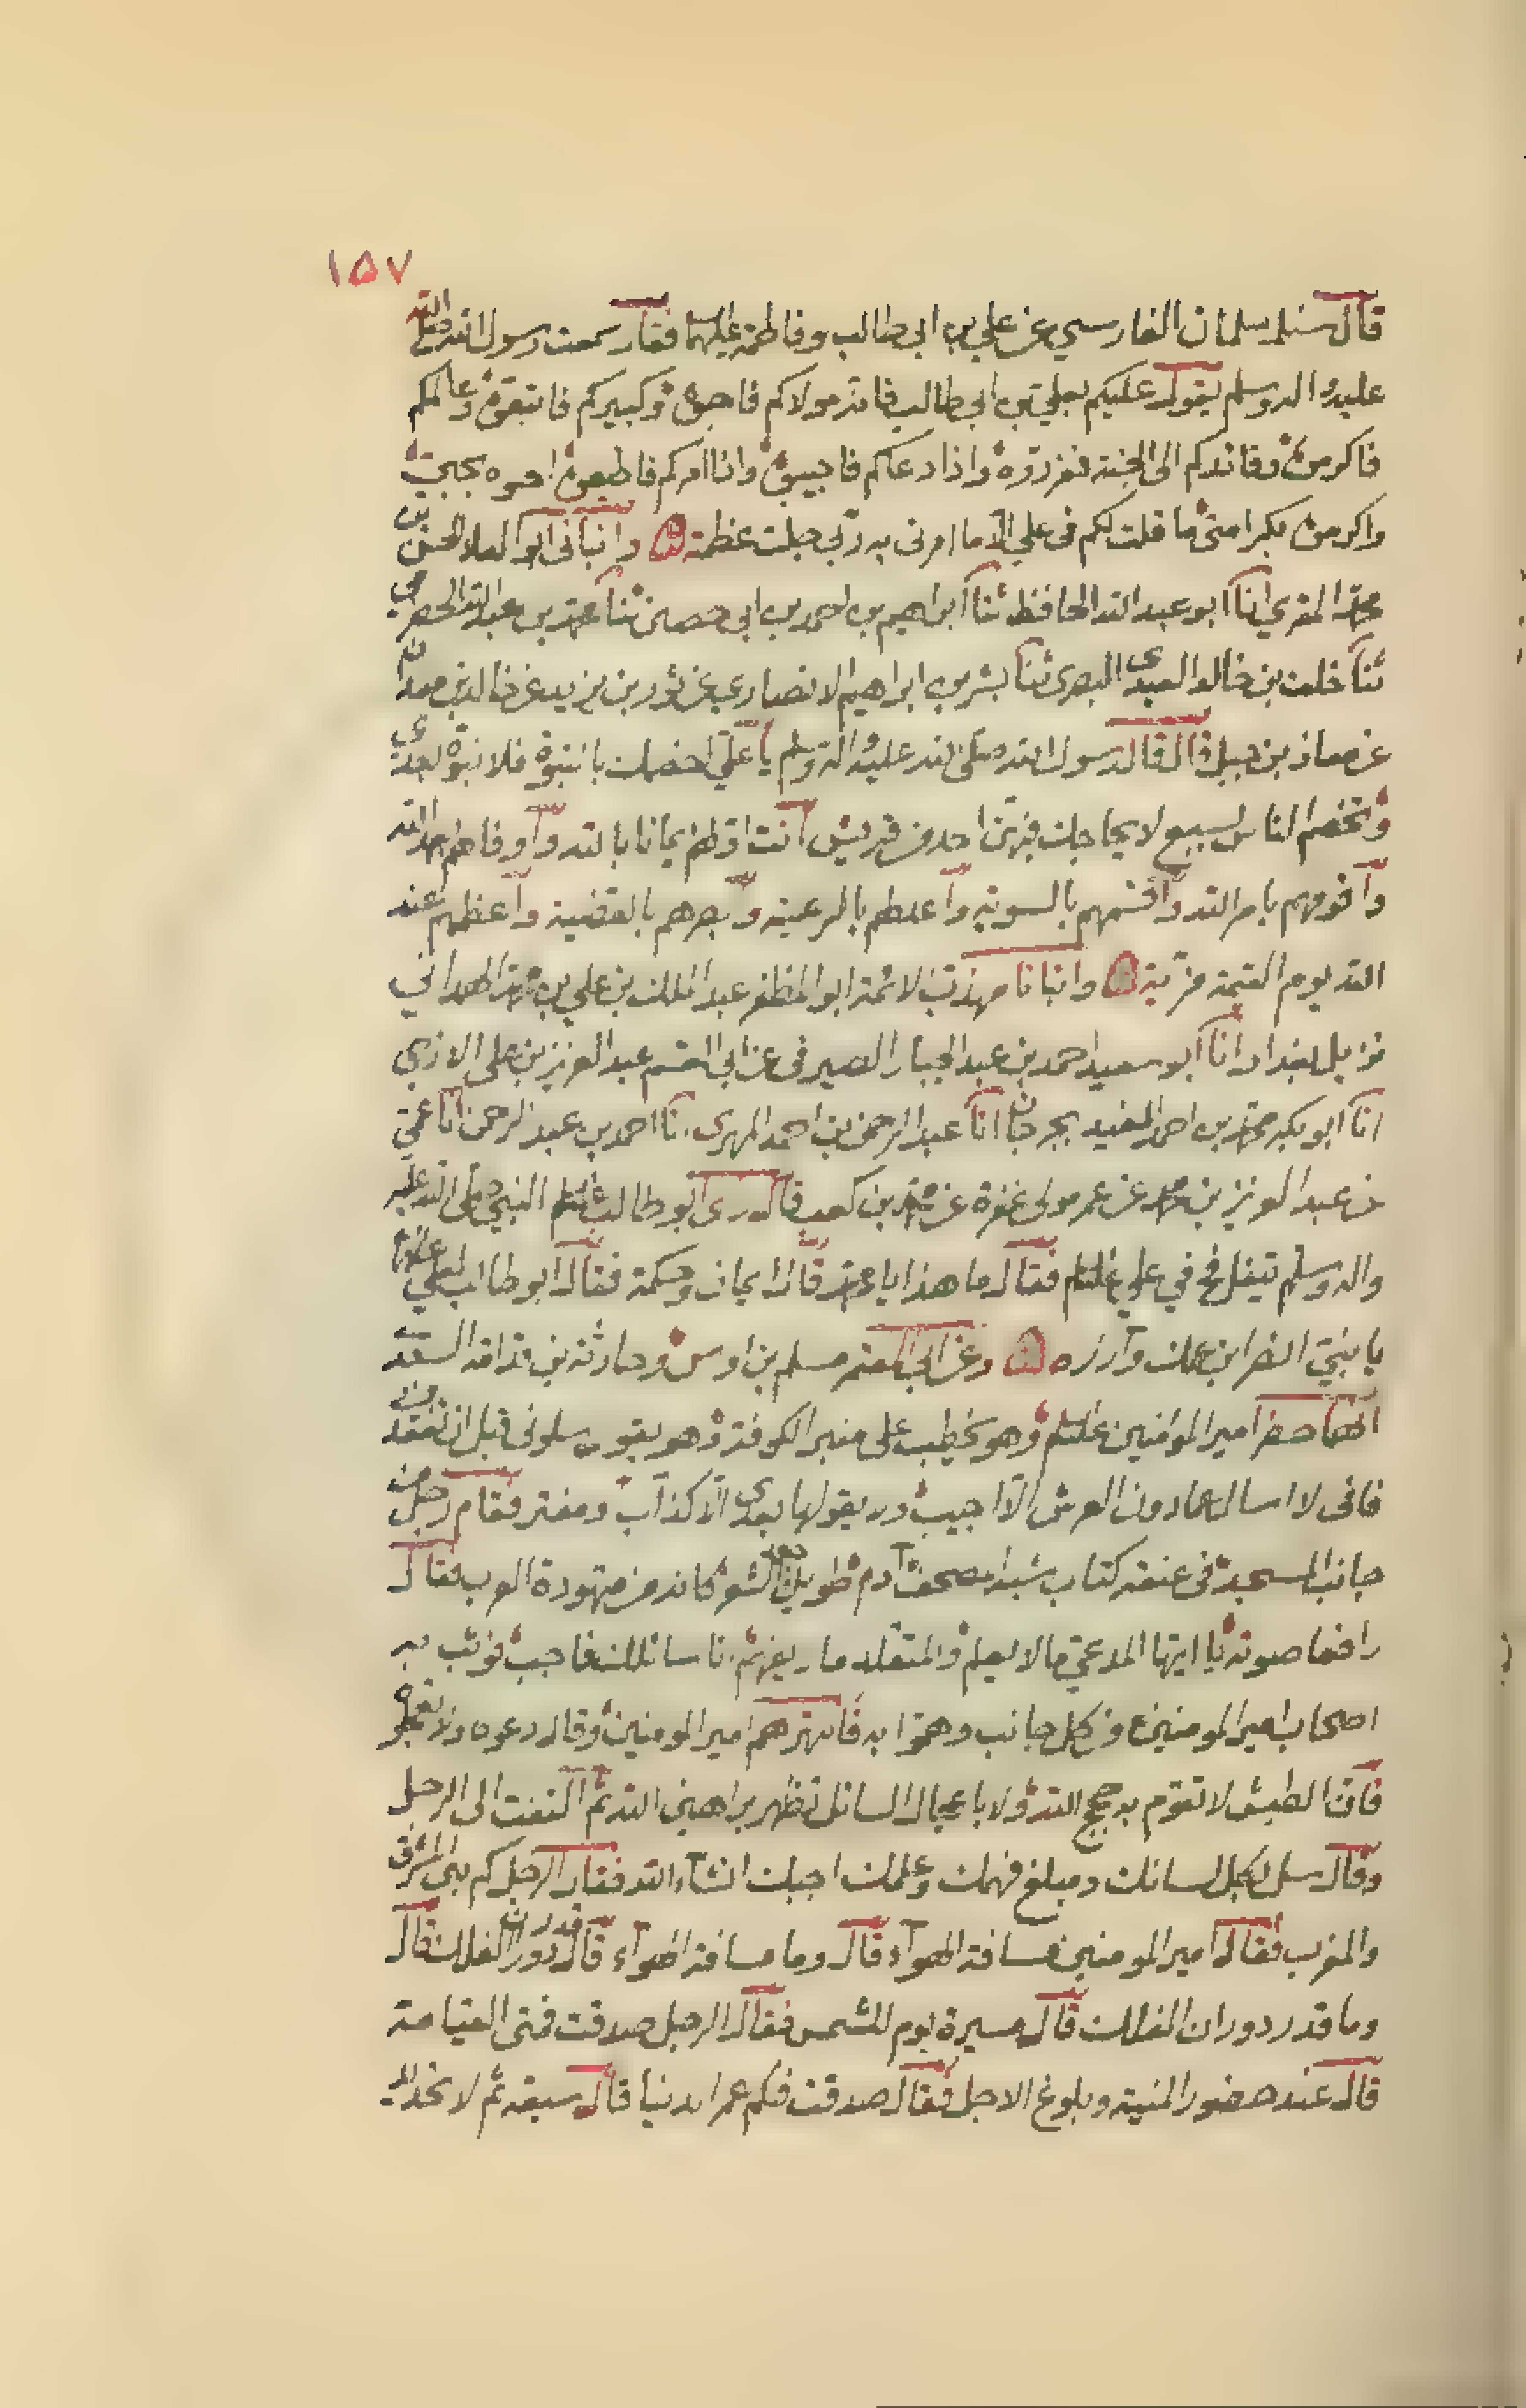 ١٥٧
قال سئل سلمان الفارسي عن علي بن ابي طالب وفاطمة عليهما فقال سمعت رسول الله صلى الله
عليه واله وسلم يقول عليكم بعلي بن ابي طالب فانه مولاكم فاحبوه وكبيركم فاتبعوه وعالمكم
فاكرموه وقائدكم الى الجنة فعززوه واذا دعاكم فاجيبوه واذا امركم فاطيعوه احبوه بحبي
واكرموه بكرامتي ما قلت لكم في علي الا ما امرني به ربي جلت عظمته وانبأني ابو العلا الحسن بن
محمد المقري انا ابو عبد الله الحافظ ثنا ابراهيم بن احمد بن ابي حصين ثنا محمد بن عبد الله الحضرمي
ثنا خلف بن خالد العبدي البصرى ثنا بشر بن ابراهيم الانصاري عن ثور بن يزيد عن خالد بن معدان
عن معاذ بن جبل قال قال رسول الله صلى الله عليه واله وسلم يا علي اخصمك بالنبوة فلا نبوة بعدي
وتخصم الناس بسبع لا يحاجك فيهن احد من قريش انت اولهم ايمانا بالله واوفاهم بعهد الله
واقومهم بامر الله واقسمهم بالسوية واعدلهم بالرعية وابصرهم بالقضية واعظمهم عند
الله يوم القيمة مزية وانبانا مهذب الائمة ابو المظفر عبد الملك بن علي بن محمد الهمداني
نزيل بغداد انا ابو سعيد احمد بن عبد الجبار الصيرفى عن ابي القسم عبد العزيز بن على الازجي
انا ابو بكر محمد بن احمد المفيد بجرجان انا عبد الرحمن بن احمد المهرى نا احمد بن عبد الرحمن نا عمي
عن عبد العزيز بن محمد عن عمر مولى غفرة عن محمد بن كعب قال رى ابو طالب النبي صلى الله عليه
واله وسلم يتفل في في علي فقال ما هذا يا محمد قال ايمان وحكمة فقال ابو طالب لعلي
يا بني انصر ابن عمك وآزره وعن ابي المعتمر مسلم بن اوس وحارثة بن قدامة السعدي
انهما حضرا امير المؤمنين وهو يخطب على منبر الكوفة وهو يقول سلونى قبل ان تفقدوني
فانى لا اسال عما دون العرش الا اجيب فيه لا يقولها بعدى الا كذاب او مفتر فقام رجل من
جانب المسجد فى عنقه كتاب شبه مصحف آدم طويل جعد الشعر كانه من متهودة العرب فقال
رافعا صوته يا ايها المدعي ما لا يعلم والمتقلد ما لا يفهم انا سائلك فاجب فوثب به
اصحاب امير المومنين من كل جانب وهموا به فانتهرهم امير المومنين وقال دعوه ولا تعجلوه
فان الطيش لا تقوم به حجج الله ولا باعجال السائل تظهر براهين الله ثم التفت الى الرجل
وقال سل بكل لسانك ومبلغ فهمك وعلمك اجبك انشاء الله فقال الرجل كم بين المشرق
والمغرب فقال امير المومنين مسافة الهوآء قال وما مسافة الهوآء قال قدر دوران الفلك قال
وما قدر دوران الفلك قال مسيرة يوم للشمس فقال الرجل صدقت فمتى القيامة
قال عند حضور المنية وبلوغ الاجل فقال صدقت فكم عمر الدنيا قال سبعة ثم لا تحديد